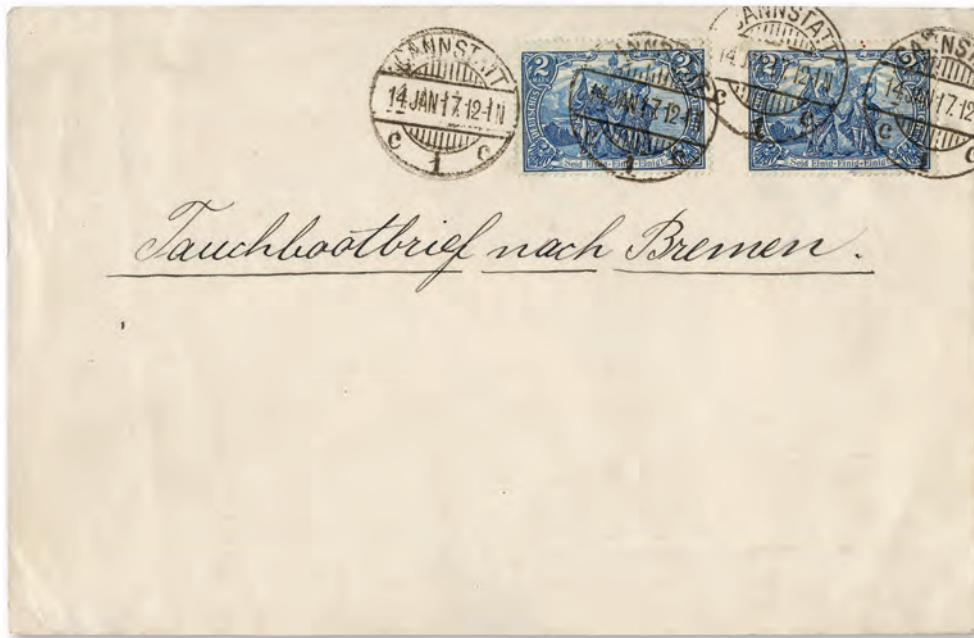 CANNSTATT
14 JAN 17. 12-1 N
C 1 C
2 2
DEUTSCHES
Seid Einig-Einig-Einig!
CANNSTATT
14 JAN 17. 12-1 N
C 1
2
Seid Einig-Einig-Einig!
CANNSTATT
14 JAN 17. 12
C C
Tauchbootbrief nach Bremen.